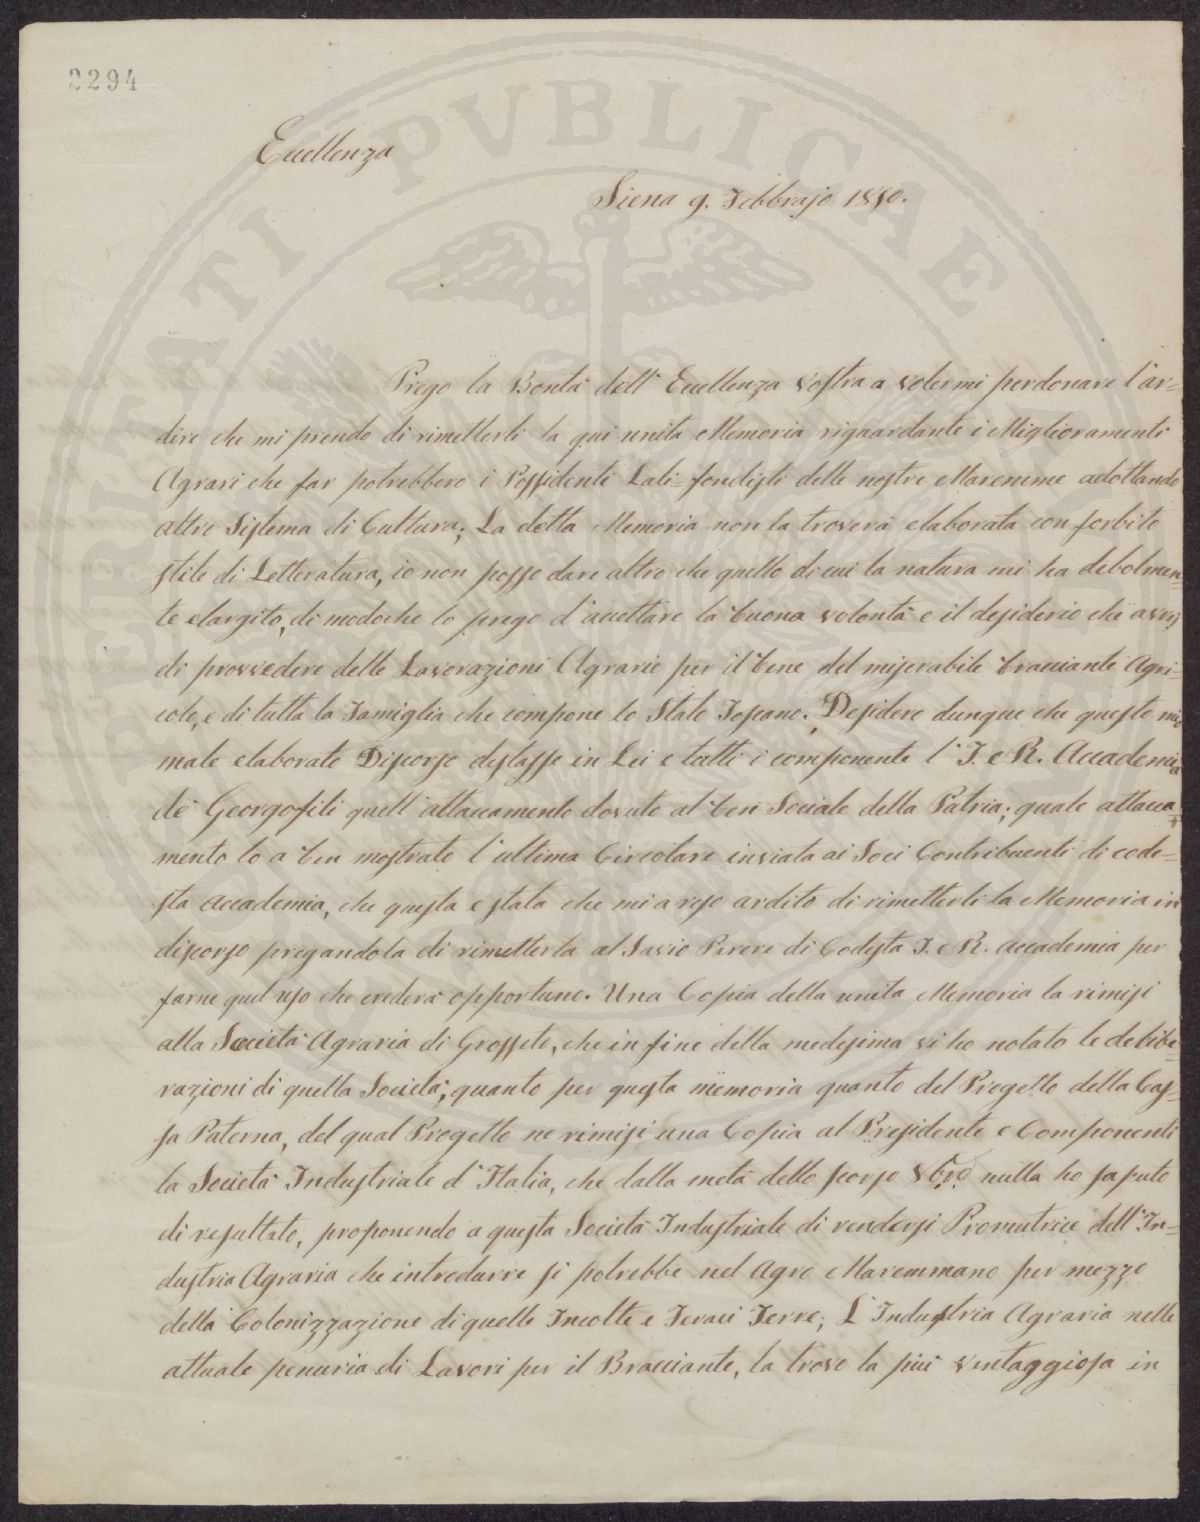 2294
Eccellenza
Siena 9. Febbrajo 1850.
Prego la Bontà dell' Eccellenza Vostra a volermi perdonare l'ar=
dire che mi prendo di rimetterli la qui unita Memoria riguardante i Miglioramenti
Agrari che far potrebbero i Possidenti Lati=fondisti delle nostre Maremme adottando
altro Sistema di Cultura; La detta Memoria non la troverà elaborata con forbito
stile di Letteratura, io non posso dare altro che quello di cui la natura mi ha debolmen=
te elargito, di modoche lo prego d'accettare la buona volontà e il desiderio che avrej
di provvedere delle Lavorazioni Agrarie per il bene del miserabile bracciante Agri=
colo, e di tutta la Famiglia che compone lo Stato Toscano. Desidero dunque che questo mio
male elaborato Discorso destasse in Lei e tutti i componente l' I. e R. Accademia
de' Georgofili quell' attaccamento dovuto al ben Sociale della Patria; quale attacca=
mento lo a ben mostrato l'ultima Circolare inviata ai Soci Contribuenti di code=
sta Accademia, che questa e stata che mi a reso ardito di rimetterli la Memoria in
discorso pregandola di rimetterla al Savio Parere di Codesta I. e R. accademia per
farne quel uso che crederà opportuno. Una Copia della unita Memoria la rimisi
alla Società Agraria di Grosseto, che in fine della medesima vi ho notato le delibe=
razioni di quella Società, quanto per questa memoria quanto del Progetto della Cas=
sa Paterna, del qual Progetto ne rimisi una Copia al Presidente e Componenti
la Società Industriale d'Italia, che dalla metà dello scorso nulla ho saputo
di resultato, proponendo a questa Società Industriale di rendersi Promutrice dell' In=
dustria Agraria che introdurre si potrebbe nel Agro Maremmano per mezzo
della Colonizzazione di quelle Incolte e Feraci Terre; L'Industria Agraria nelle
attuale penuria di Lavori per il Bracciante, la trovo la più vantaggiosa in
PVBLICAE